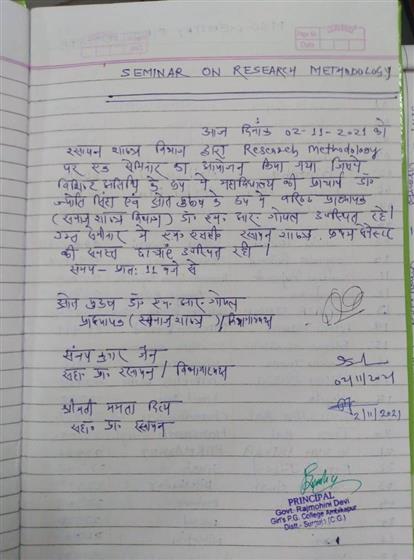 SEMINAR ON RESEARCH METHODOLOGY
आज दिनांक 02-11-2021 को
रसायन शास्त्र विभाग द्वारा Research Methodology
पर एक सेमिनार का आयोजन किया गया जिसमे
विशिष्ट अतिथि के रूप मे महाविद्यालय की प्राचार्य डॉ.
ज्योति सिन्हा एवं स्रोत पुरुष के रूप मे वरिष्ठ प्राध्यापक
(समाज शास्त्र विभाग) डॉ. एच. आर. गोयल उपस्थित रहे।
उक्त सेमीनार मे एम. एससी. रसायन शास्त्र प्रथम सेमेस्टर
की समस्त छात्राएं उपस्थित रही।
समय - प्रातः 11 बजे से
स्रोत पुरुष डॉ. एच. आर. गोयल
प्राध्यापक (समाज शास्त्र) / विभागाध्यक्ष
संजय कुमार जैन
सहा. प्रा. रसायन / विभागाध्यक्ष
02/11/2021
श्रीमती ममता
2/11/2021
सहा. प्रा. रसायन
PRINCIPAL
Govt. Rajmohini Devi
Girl's P.G. College Ambikapur
Distt.- Surguja (C.G.)